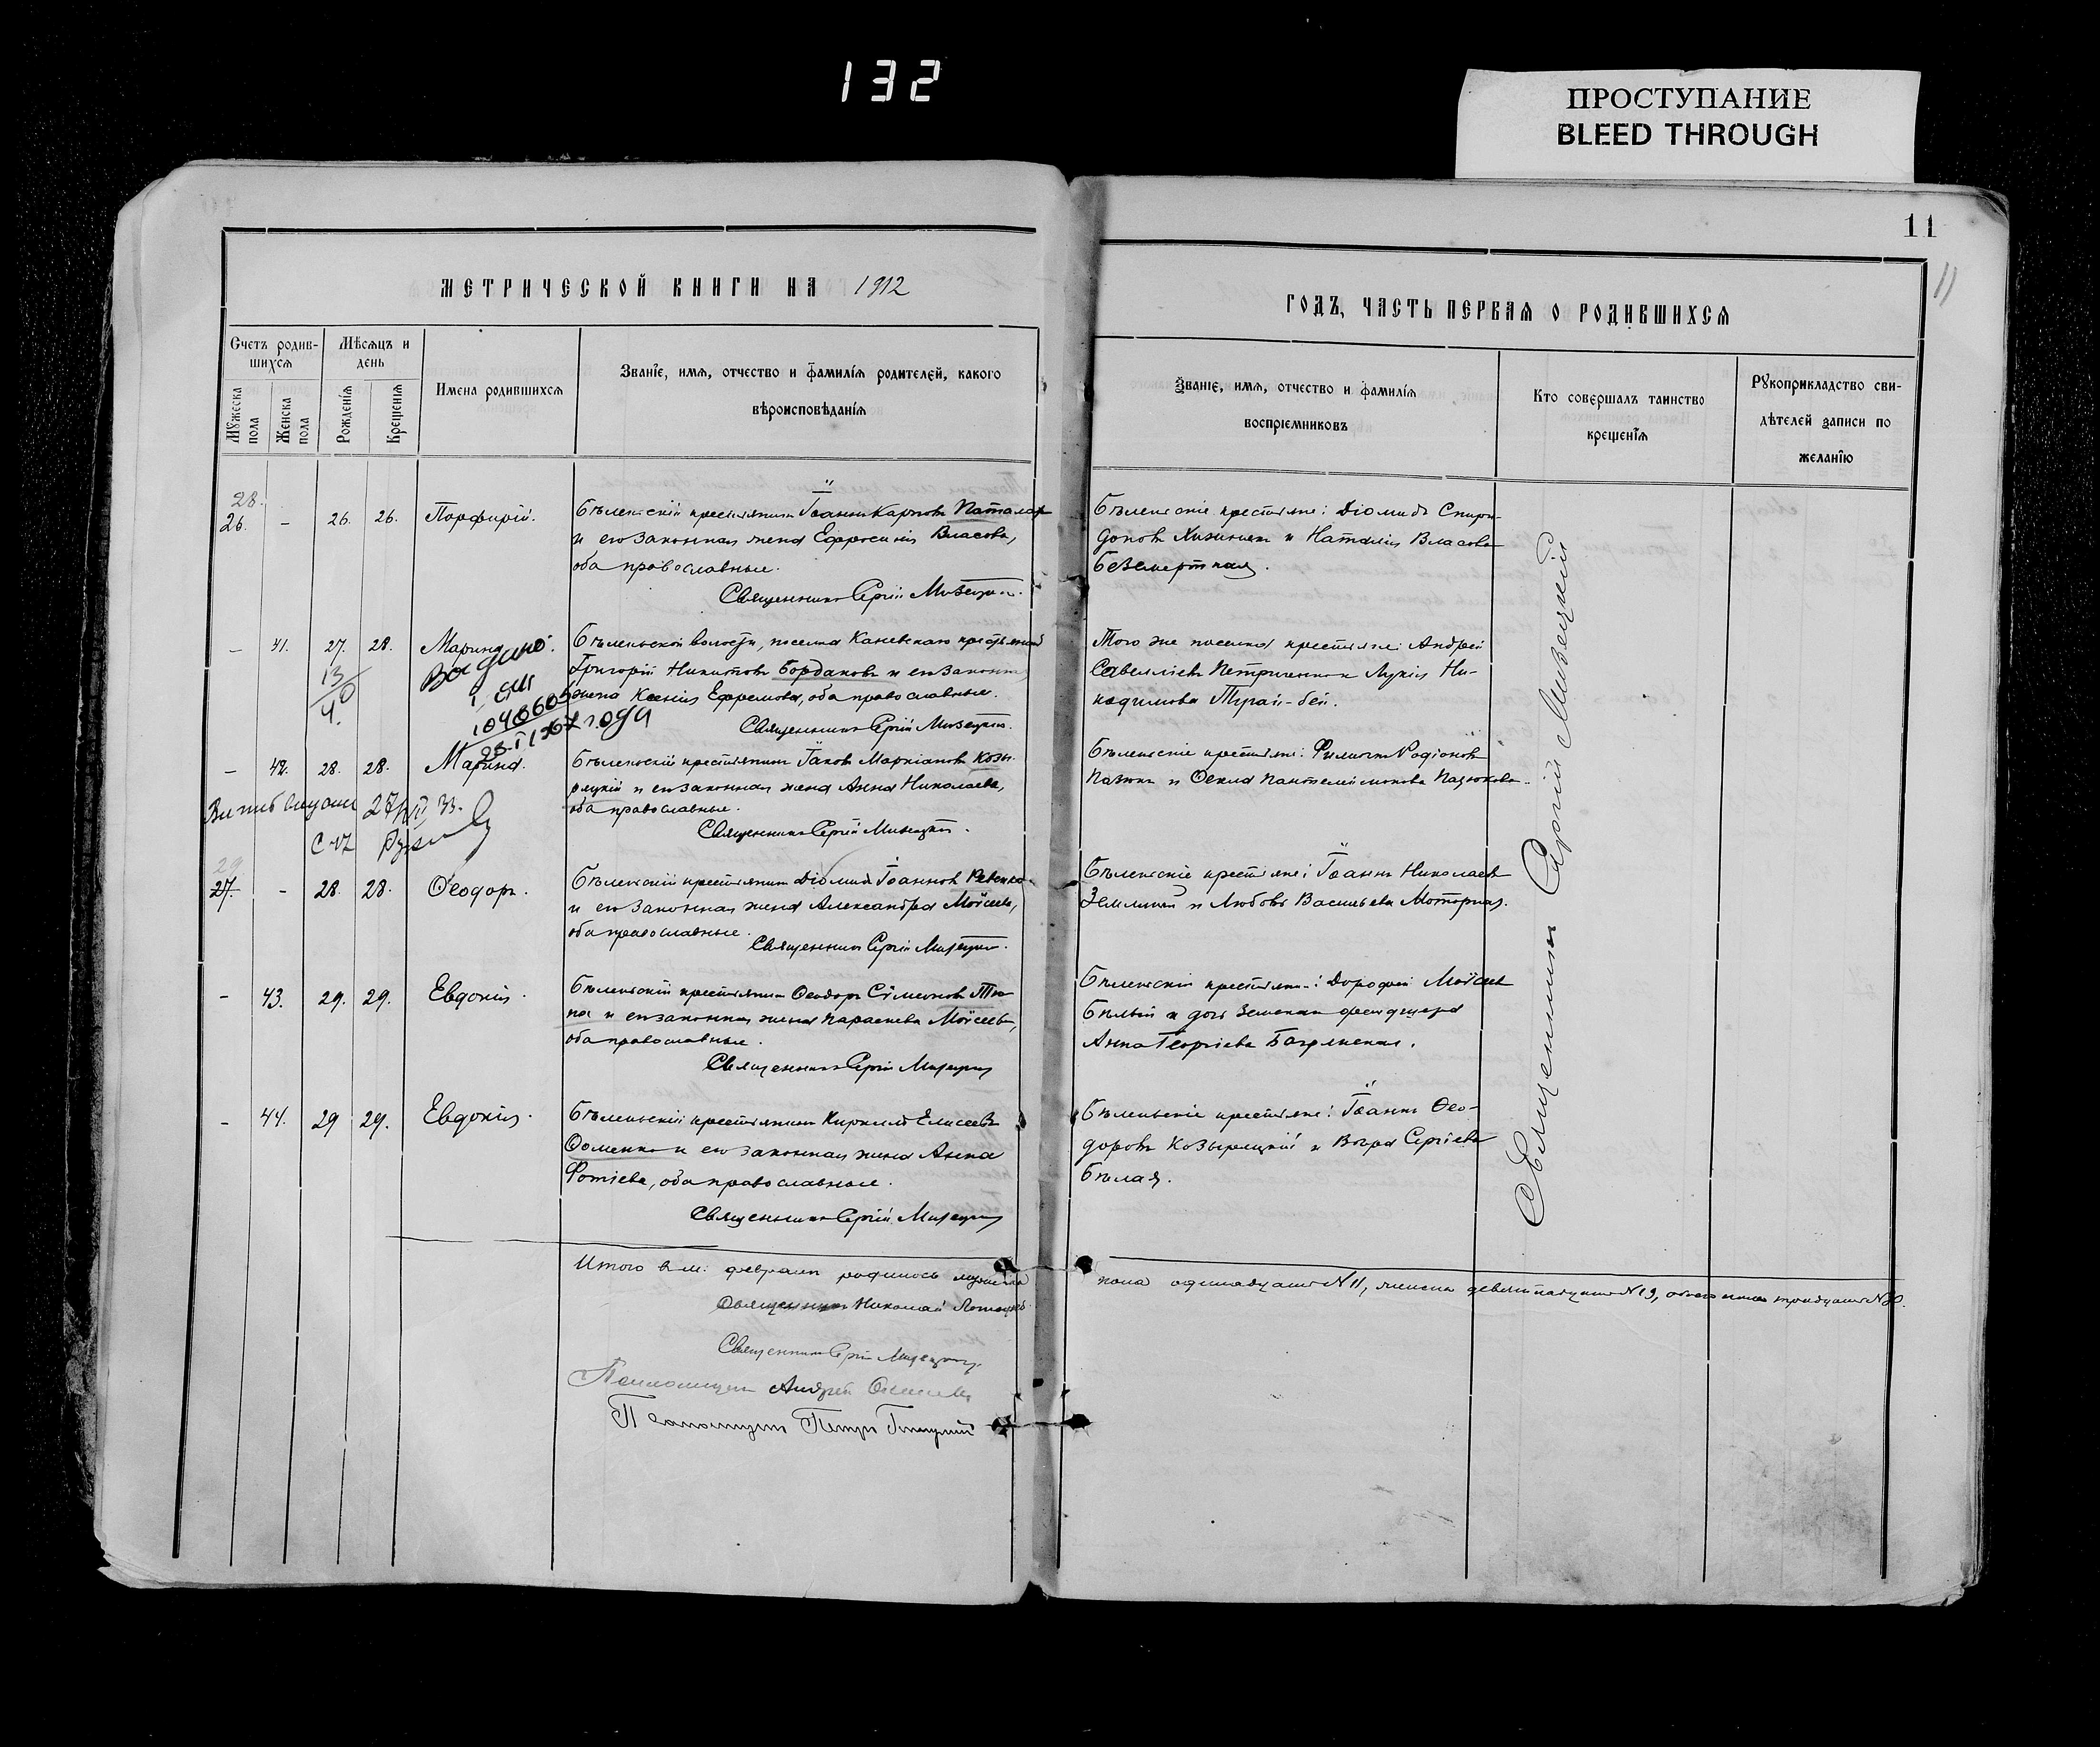 132
ПРОСТУПАНИЕ
BLEED THROUGH
11
11
МЕТРИЧЕСКОЙ КНИГИ НА 1912
ГОДЪ, ЧАСТЬ ПЕРВАЯ О РОДИВШИХСЯ
Счетъ родив-
шихся
Мѣсяцъ и
день
Мужеска
пола
Женска
пола
Рожденія
Крещенія
Имена родившихся
Званіе, имя, отчество и фамилія родителей, какого
вѣроисповѣданія
Званіе, имя, отчество и фамилія
воспріемниковъ
Кто совершалъ таинство
крещенія
Рукоприкладство сви-
дѣтелей записи по
желанію
28.
26. - 26. 26. Порфирій.
Бѣленскій крестьянинъ Іоаннъ Карповъ
и его законная жена Ефросинія Власова,
оба православные.
Священникъ Сергій Мизецкій.
Бѣленскіе крестьяне: Діомидъ Спири-
доновъ и Наталія Власова
Безсмертная.
- 41. 27. 28. Марина.
13
4.
Бѣленьской волости, поселка Каневскаго крестьянинъ
Григорій Никитовъ Бордаковъ и его законная
жена Ксенія Ефремова, оба православные.
Священникъ Сергій Мизецкій.
Того же поселка крестьяне: Андрей
Савелліевъ Петриченко и Лукія Ни-
кодимова Турай-бей.
- 42. 28. 28. Марина.
Бѣленьскій крестьянинъ Іаковъ Маркіановъ Козы-
рецкій и его законная жена Анна Николаева,
оба православные.
Священникъ Сергій Мизецкій.
Бѣленскіе крестьяне: Филиппъ Родіоновъ
Пазюкъ и Ѳекла Пантелеимонова Пазюкова.
29
27. - 28. 28. Ѳеодоръ.
Бѣленскій крестьянинъ Діомидъ Іоанновъ Ревенко
и его законная жена Александра Моисеева,
оба православные.
Священникъ Сергій Мизецкій.
Бѣленскіе крестьяне: Іоаннъ Николаевъ
Земляный и Любовь Васильева Моторная.
- 43. 29. 29. Евдокія.
Бѣленскій крестьянинъ Ѳеодоръ Сімеоновъ
и его законная жена Параскева Моисеева,
оба православные.
Священникъ Сергій Мизецкій
Бѣленскіе крестьяне: Дорофей Моисеевъ
Бѣлый и дочь
Анна Георгіева
- 44. 29 29. Евдокія.
Бѣленьскій крестьянинъ Кириллъ Елисеевъ
Ѳоменко и его законная жена Анна
Фотіева, оба православные.
Священникъ Сергій Мизецкій
Бѣленьскіе крестьяне: Іоаннъ Ѳео-
доровъ Козырецкій и Вѣра Сергіева
Бѣлая.
Священникъ Сергій Мизецкій
Итого в м. февралѣ родилось мужеска
пола одинадцать №11, женска девятнадцать №19, обоего пола тридцать №30.
Священникъ Николай
Священникъ Сергій Мизецкій.
Псаломщикъ Андрей
Псаломщикъ Петръ